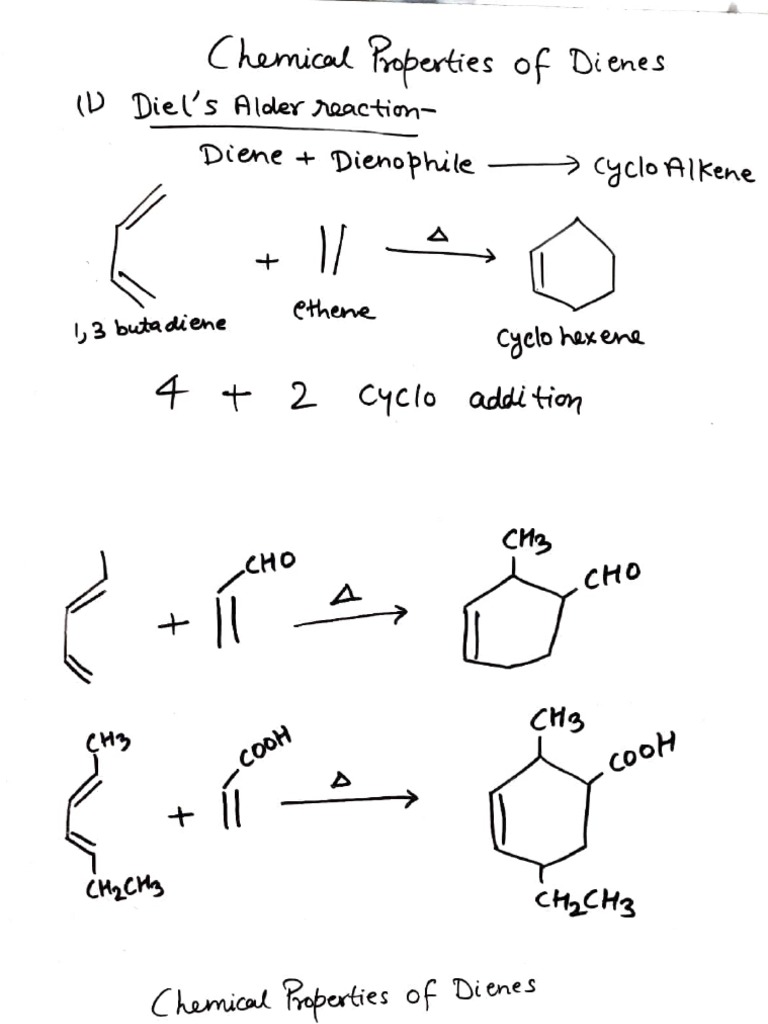 Chemical Properties of Dienes
(1) Diel's Alder reaction-
Diene + Dienophile ⟶ Cyclo Alkene
+ Δ
1,3 butadiene
ethene
Cyclo hexene
4 + 2 Cyclo addition
CH3
+ CHO Δ CHO
CH3
CH3 COOH COOH
+ Δ
CH2CH3
CH2CH3
Chemical Properties of Dienes